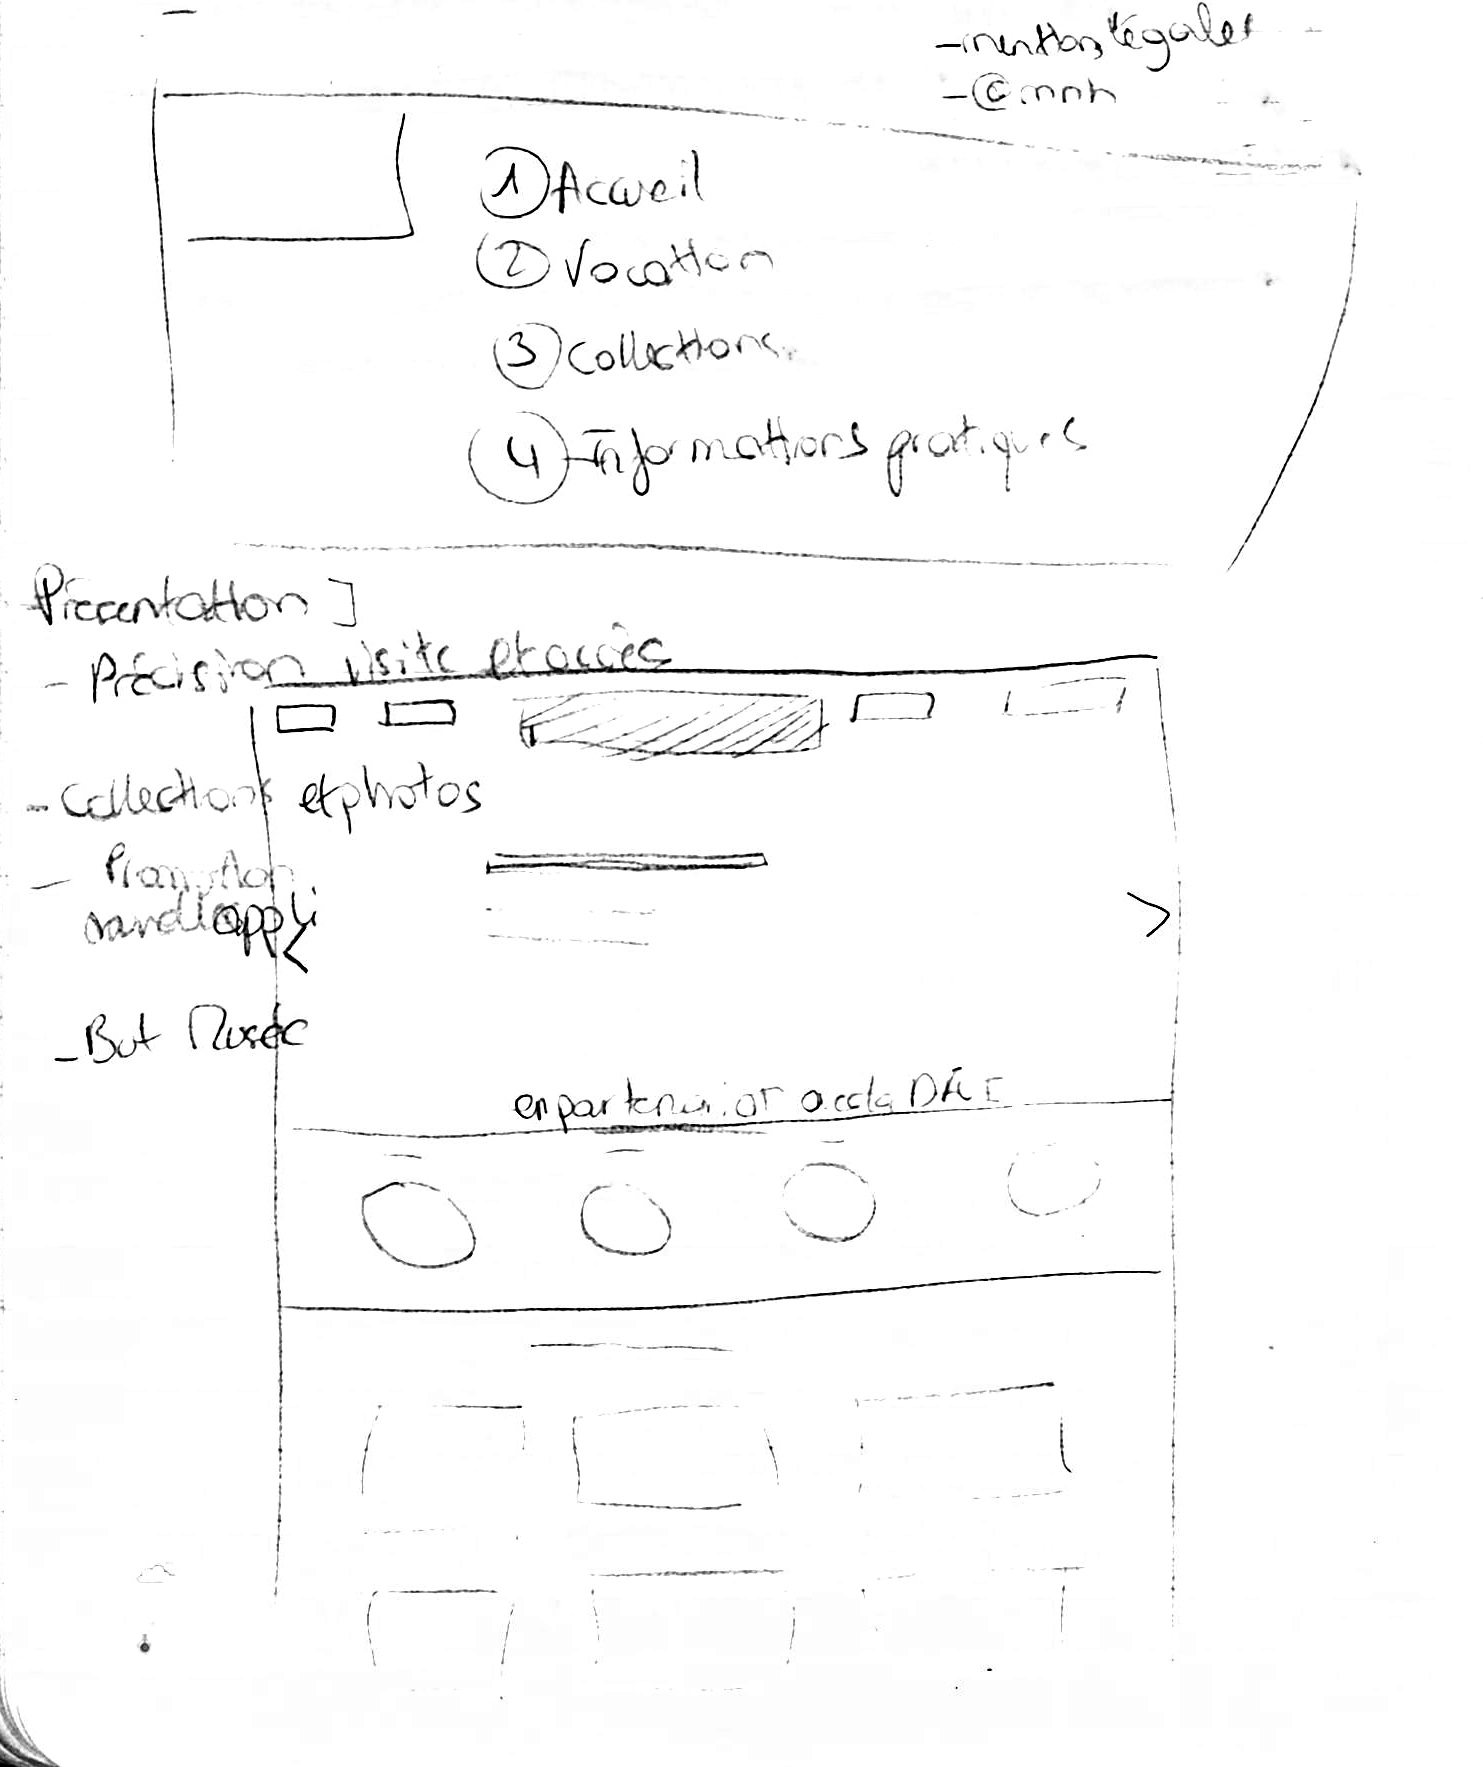 - mentions légales
- @mnh
① Accueil
② Vocation
③ Collections
④ Informations pratiques
Présentation ]
- Précision visite et accès
- Collections et photos
- Promotion
appli
<
>
- But Musée
en partenariat